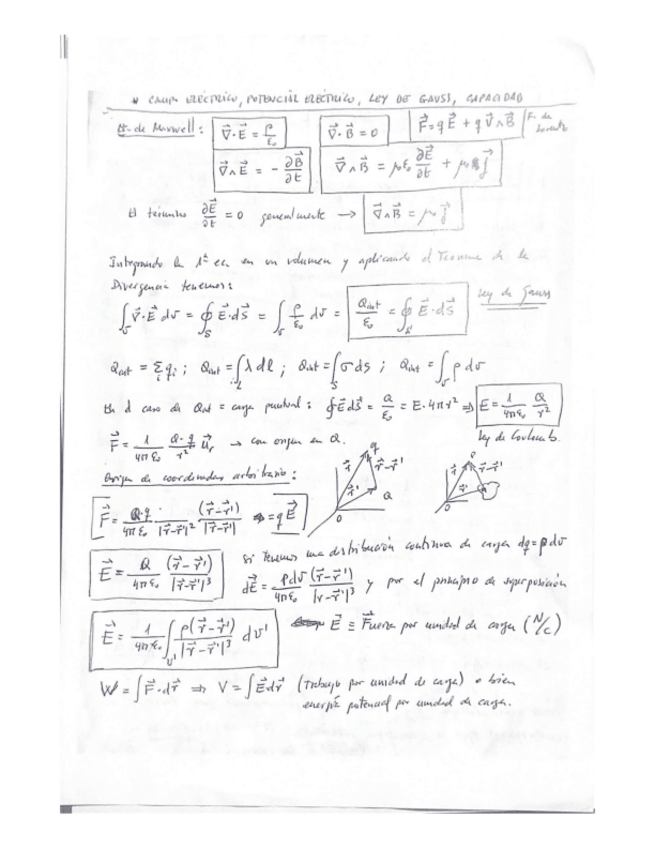 * CAMPO ELÉCTRICO, POTENCIAL ELÉCTRICO, LEY DE GAUSS, CAPACIDAD
Ec. de Maxwell: ∇·E = ρ/ε₀   ∇·B = 0   F = qE + q v∧B   F. de Lorentz
∇∧E = -∂B/∂t   ∇∧B = μ₀ε₀ ∂E/∂t + μ₀ j
El término ∂E/∂t = 0 generalmente → ∇∧B = μ₀ j
Integrando la 1ª ec. en un volumen y aplicando el Teorema de la
Divergencia tenemos:
∫_v ∇·E dv = ∮_S E·dS = ∫_v ρ/ε₀ dv = Q_int/ε₀ = ∮_S E·dS   Ley de Gauss
Q_int = Σ_i q_i ; Q_int = ∫_L λ dl ; Q_int = ∫_S σ ds ; Q_int = ∫_v ρ dv
En el caso de Q_int = carga puntual: ∮E dS = Q/ε₀ = E·4πr² ⇒ E = 1/4πε₀ Q/r²
F = 1/4πε₀ Q·q/r² u_r → con origen en Q.   Ley de Coulomb.
Origen de coordenadas arbitrario:
q r r-r' r' Q 0
r r-r' r' 0
F = Q·q/4πε₀ 1/|r-r'|² (r-r')/|r-r'| = qE
E = Q/4πε₀ (r-r')/|r-r'|³   si tenemos una distribución continua de carga dq = ρ dv
dE = ρdv/4πε₀ (r-r')/|r-r'|³ y por el principio de superposición
E = 1/4πε₀ ∫_v' ρ(r-r')/|r-r'|³ dv'   E ≡ Fuerza por unidad de carga (N/C)
W = ∫F·dr ⇒ V = ∫E dr (Trabajo por unidad de carga) o bien
energía potencial por unidad de carga.